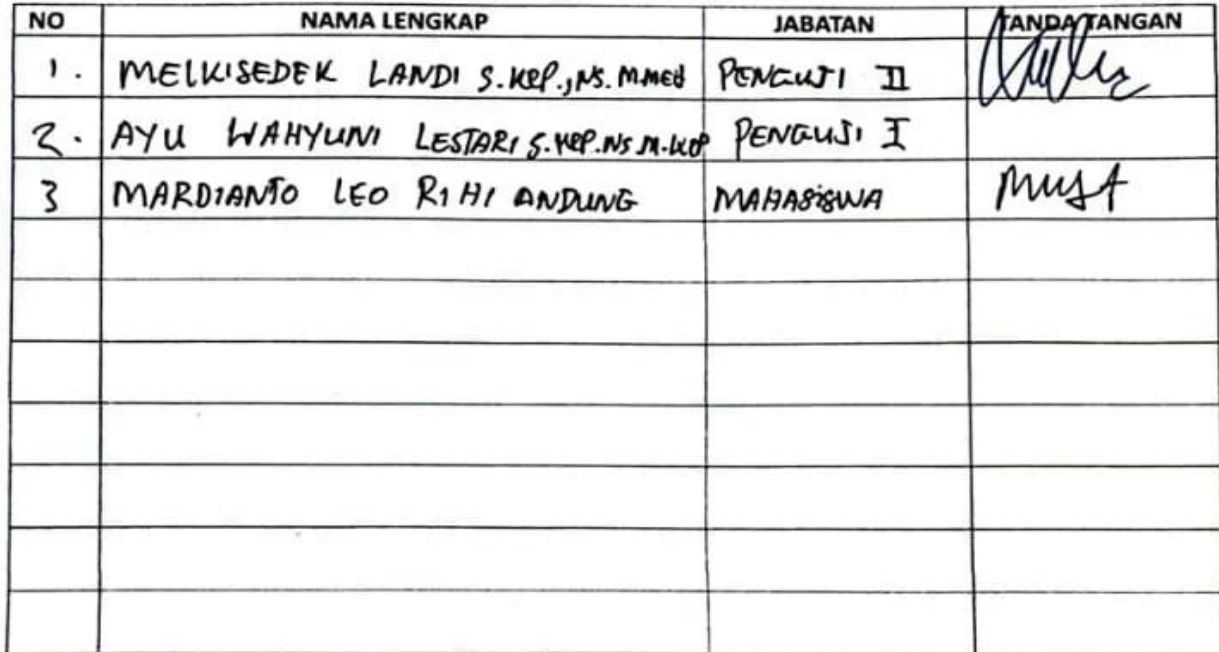 NO NAMA LENGKAP JABATAN TANDA TANGAN
1. MELKISEDEK LANDI S.KEP.,NS.M.MED PENGUJI II
2. AYU WAHYUNI LESTARI S.KEP.NS.M.KEP PENGUJI I
3 MARDIANTO LEO RIHI ANDUNG MAHASISWA